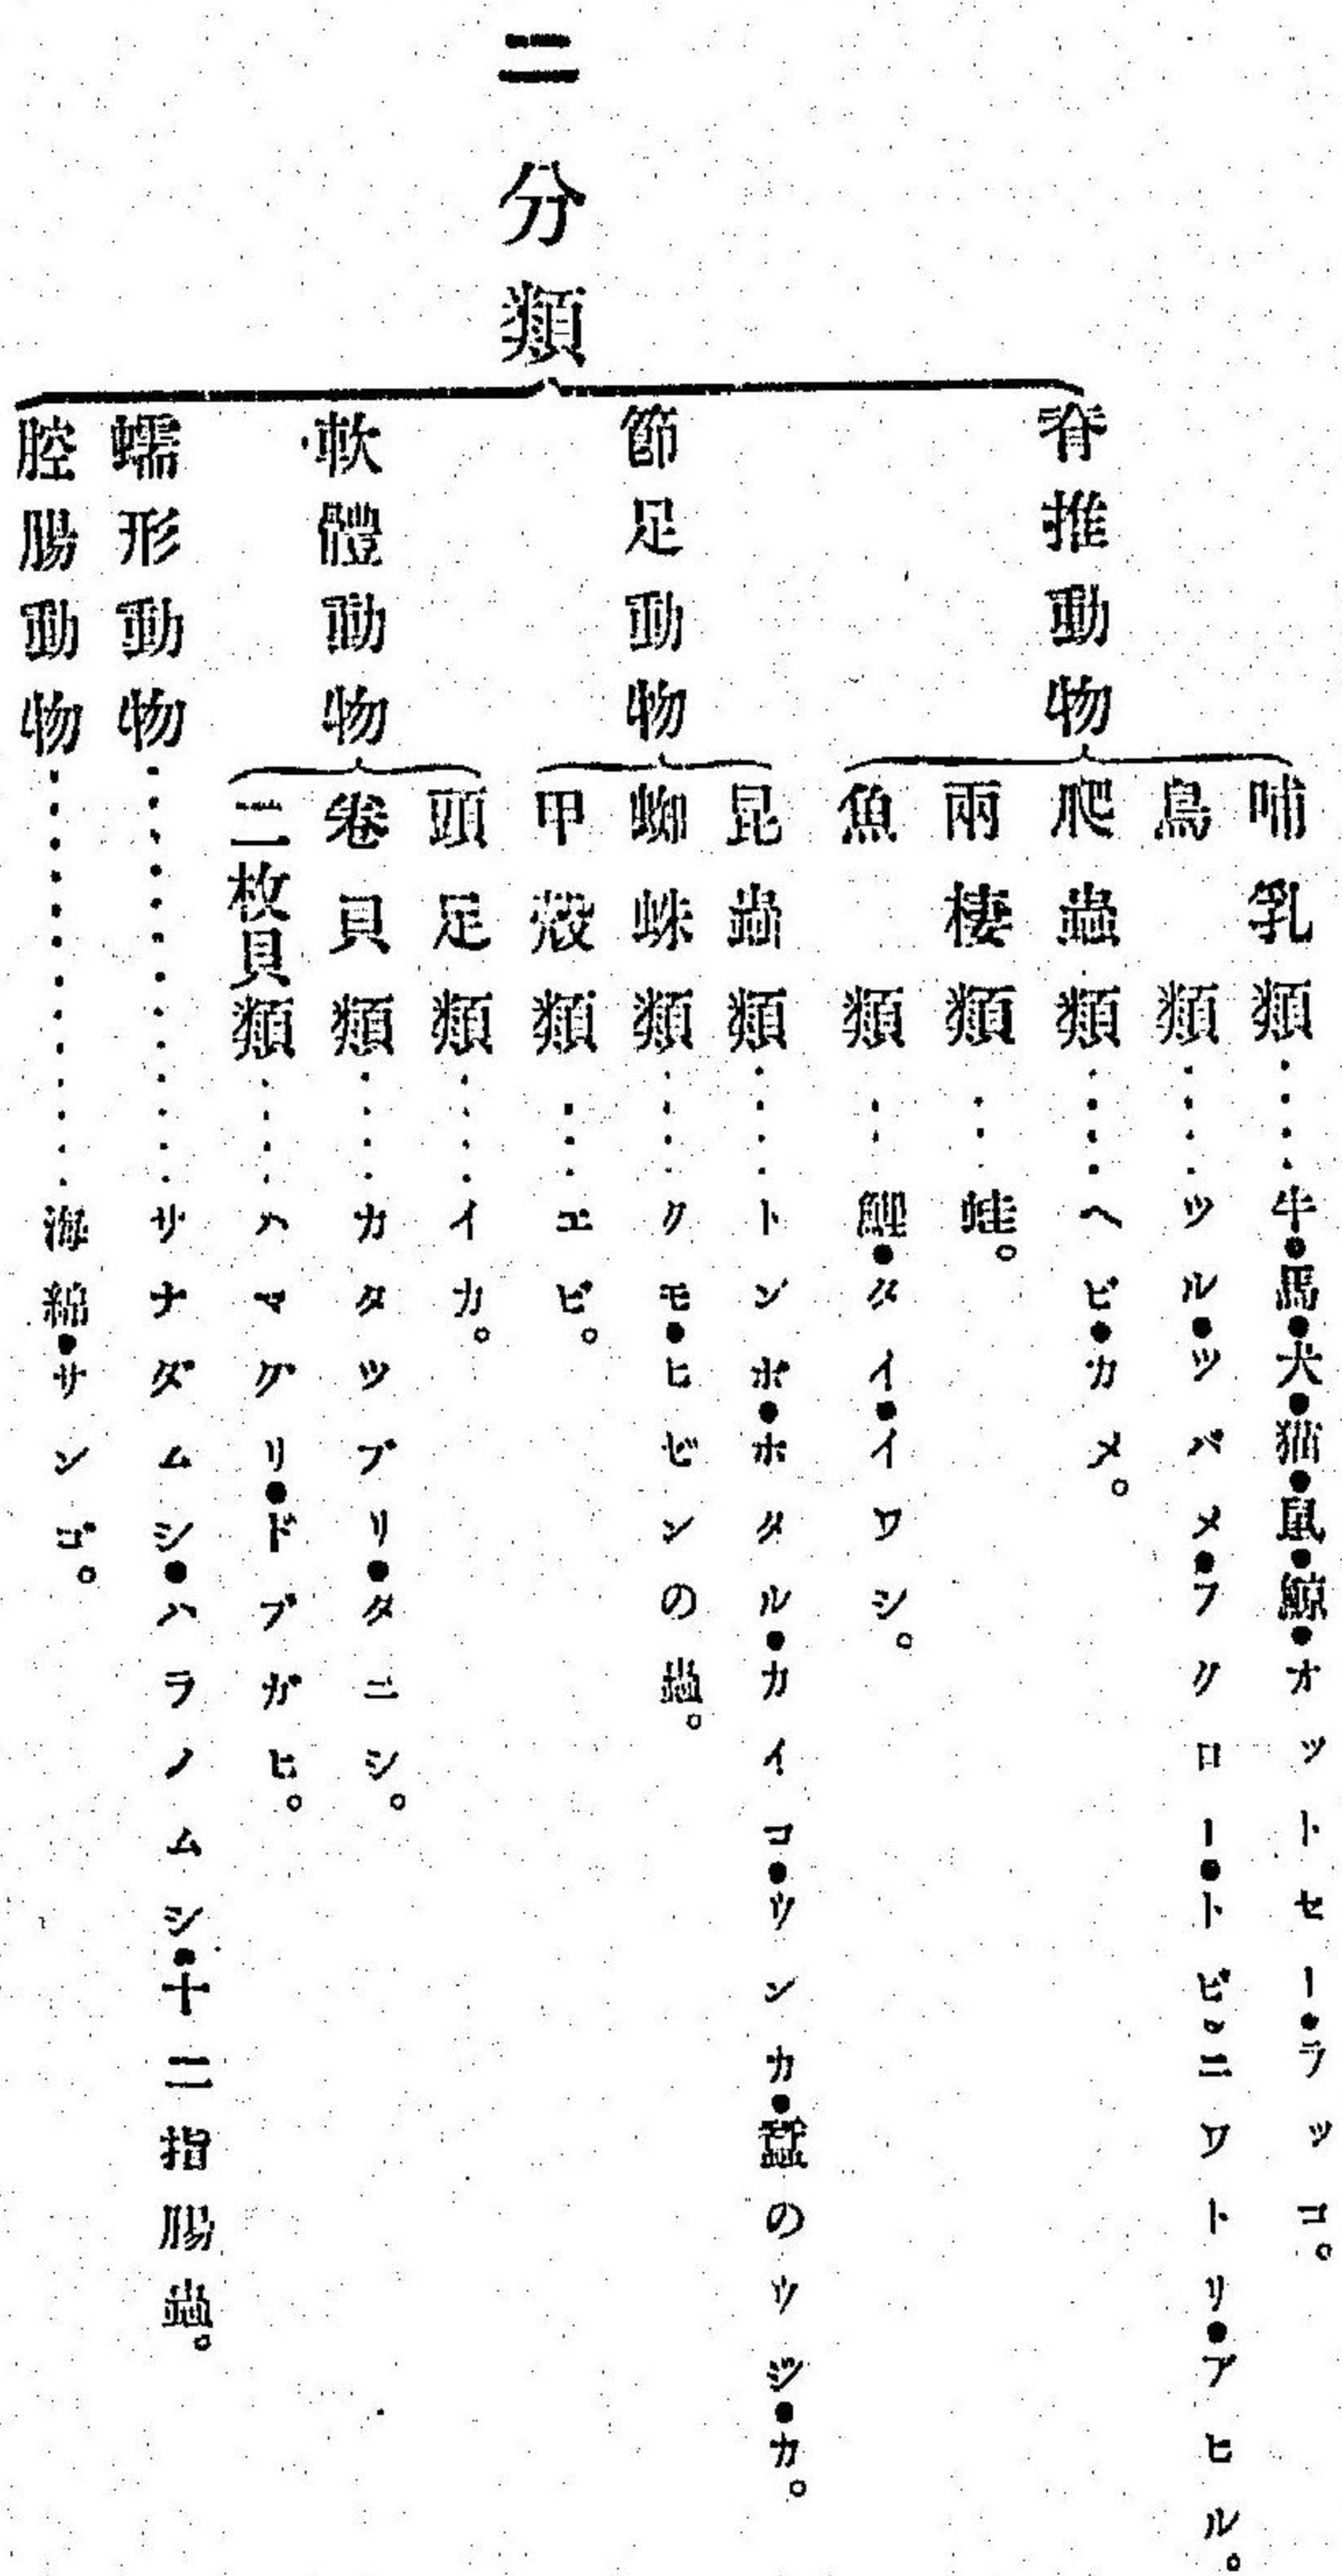 二分類
脊推動物
哺乳類‥‥牛・馬・犬・猫・鼠・鯨・オットセー・ラッコ。
鳥類‥‥ツル・ツバメ・フクロー・トビ・ニワトリ・アヒル。
爬蟲類‥‥ヘビ・カメ。
兩棲類‥‥蛙。
魚類‥‥鯉・タイ・イワシ。
節足動物
昆蟲類‥‥トンボ・ホタル・カイコ・ウンカ・蠶のウジ・カ。
蜘蛛類‥‥クモ・ヒゼンの蟲。
甲殼類‥‥エビ。
軟體動物
頭足類‥‥イカ。
卷貝類‥‥カタツブリ・タニシ。
二枚貝類‥‥ハマグリ・ドブガヒ。
蠕形動物‥‥‥‥サナダムシ・ハラノムシ・十二指腸蟲。
腔腸動物‥‥‥‥海綿・サンゴ。